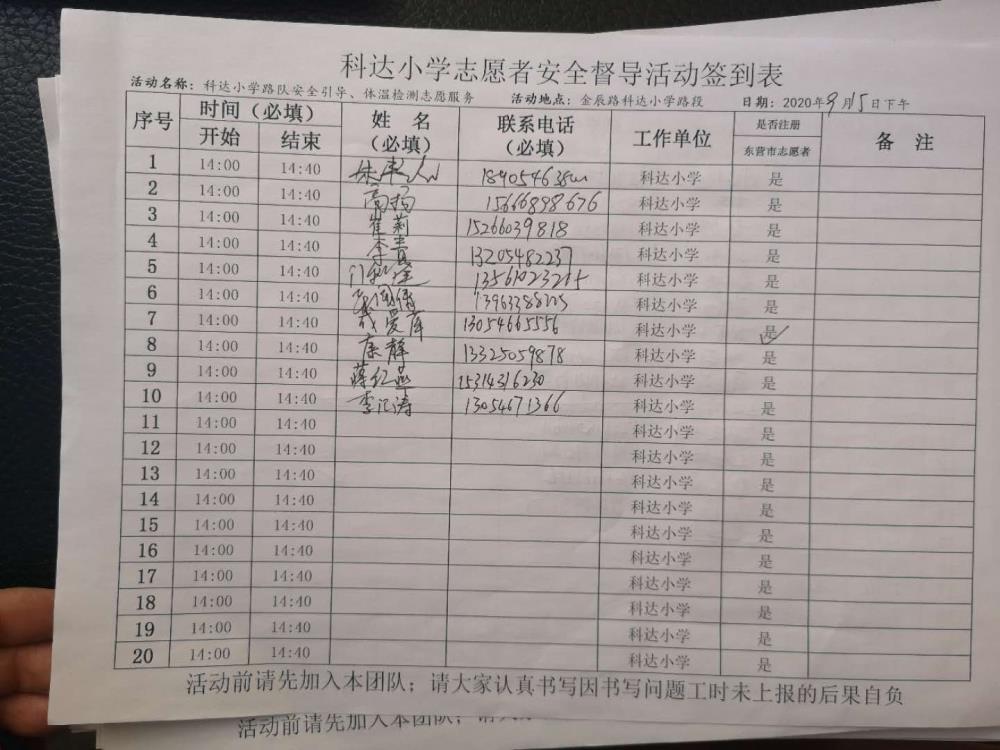 科达小学志愿者安全督导活动签到表
活动名称：科达小学路队安全引导、体温检测志愿服务 活动地点：金辰路科达小学路段 日期：2020年9月15日下午
序号 时间（必填） 姓 名（必填） 联系电话（必填） 工作单位 是否注册东营市志愿者 备 注
开始 结束
1 14:00 14:40 科达小学 是
2 14:00 14:40 高杨 15666898676 科达小学 是
3 14:00 14:40 崔莉 15266039818 科达小学 是
4 14:00 14:40 13205482237 科达小学 是
5 14:00 14:40 科达小学 是
6 14:00 14:40 科达小学 是
7 14:00 14:40 13054665556 科达小学 是
8 14:00 14:40 康静 13325059878 科达小学 是
9 14:00 14:40 蒋红燕 15314316230 科达小学 是
10 14:00 14:40 李江涛 13054671366 科达小学 是
11 14:00 14:40 科达小学 是
12 14:00 14:40 科达小学 是
13 14:00 14:40 科达小学 是
14 14:00 14:40 科达小学 是
15 14:00 14:40 科达小学 是
16 14:00 14:40 科达小学 是
17 14:00 14:40 科达小学 是
18 14:00 14:40 科达小学 是
19 14:00 14:40 科达小学 是
20 14:00 14:40 科达小学 是
活动前请先加入本团队；请大家认真书写因书写问题工时未上报的后果自负
活动前请先加入本团队；请大